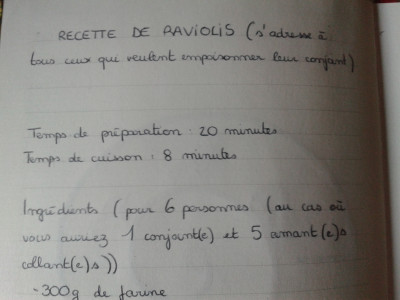 RECETTE DE RAVIOLIS (s'adresse à
tous ceux qui veulent empoisonner leur conjoint)
Temps de préparation : 20 minutes
Temps de cuisson : 8 minutes
Ingrédients (pour 6 personnes (au cas où
vous auriez 1 conjoint(e) et 5 amant(e)s
collant(e)s))
-300g de farine